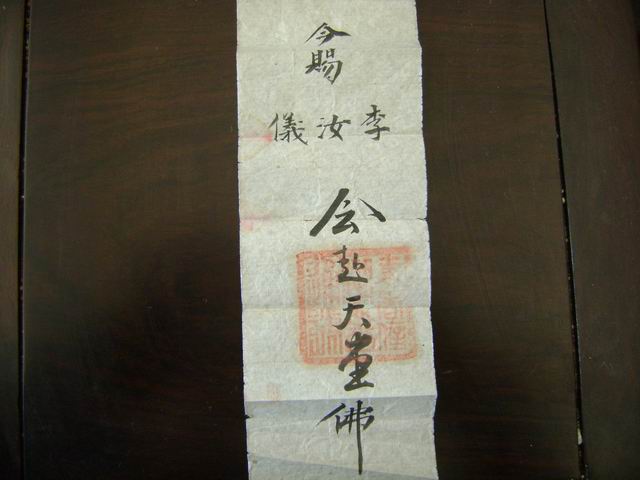 今賜
李汝儀
会赴天堂
佛